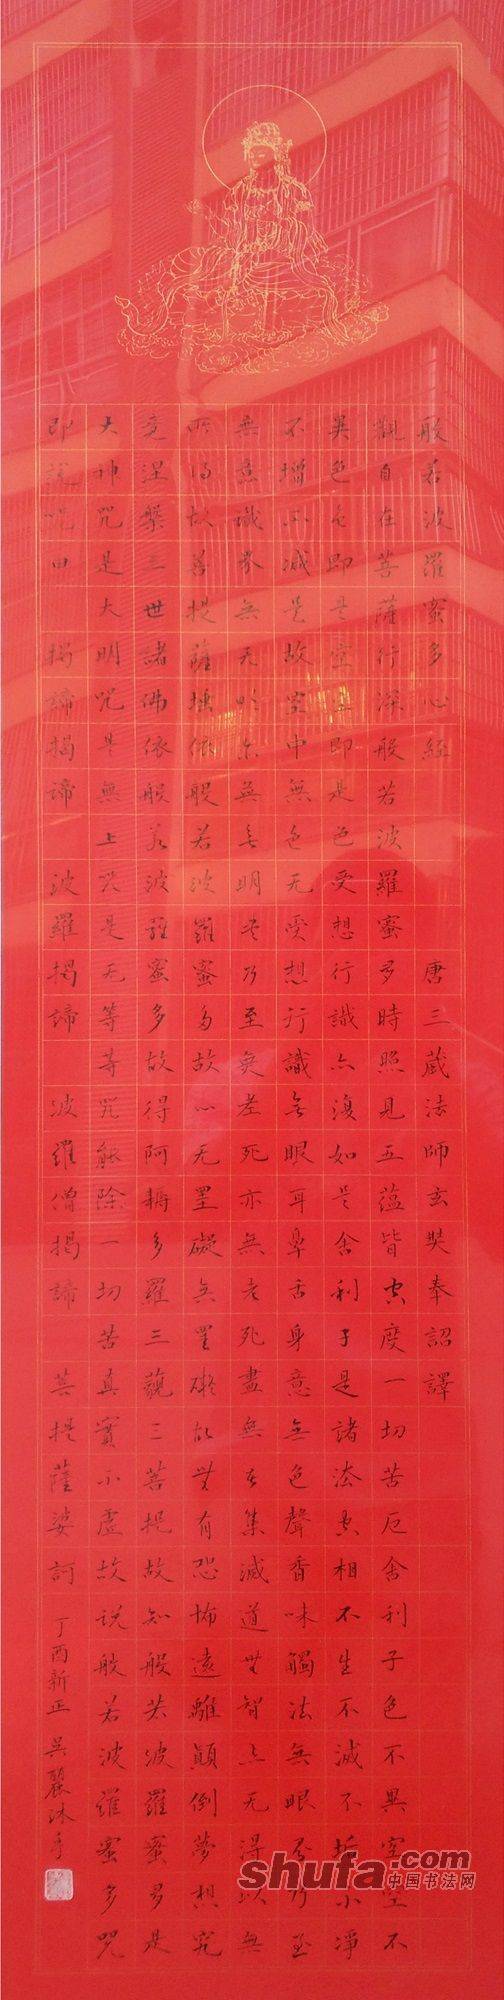 般若波羅蜜多心經 唐三藏法師玄奘奉詔譯
觀自在菩薩行深般若波羅蜜多時照見五蘊皆空度一切苦厄舍利子色不異空空不
異色色即是空空即是色受想行識亦復如是舍利子是諸法空相不生不滅不垢不淨
不增不減是故空中無色无受想行識無眼耳鼻舌身意無色聲香味觸法無眼界乃至
無意識界無无明亦無無明盡乃至無老死亦無老死盡無苦集滅道無智亦无得以無
所得故菩提薩埵依般若波羅蜜多故心无罣礙無罣礙故無有恐怖遠離顛倒夢想究
竟涅槃三世諸佛依般若波羅蜜多故得阿耨多羅三藐三菩提故知般若波羅蜜多是
大神咒是大明咒是無上咒是无等等咒能除一切苦真實不虛故説般若波羅蜜多咒
即說呪曰 揭諦揭諦 波羅揭諦 波羅僧揭諦 菩提薩婆訶 丁酉新正 吳麗沐手
shufa.com
中国书法网